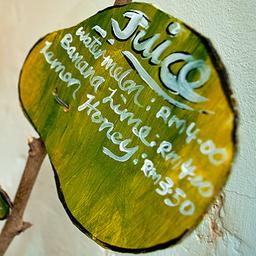 Juice
watermelon: RM4.00
Banana Lime: RM4.00
Lemon Honey: RM3.50